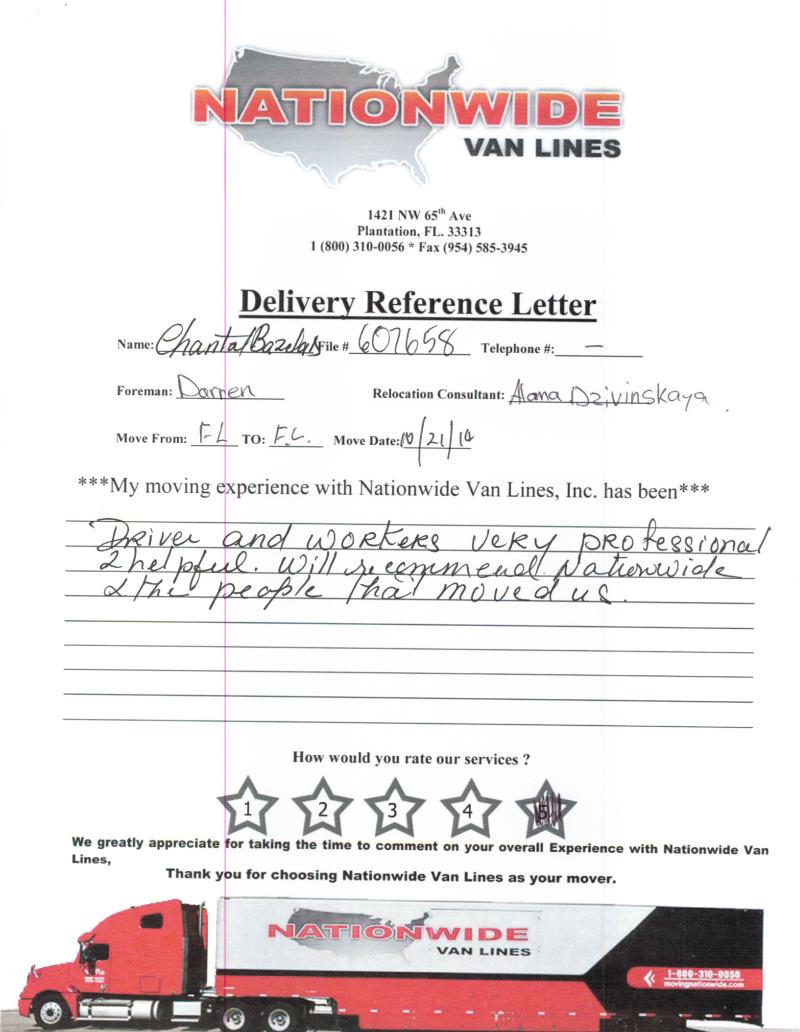 NATIONWIDE
VAN LINES
1421 NW 65th Ave
Plantation, FL. 33313
1 (800) 310-0056 * Fax (954) 585-3945
Delivery Reference Letter
Name: Chantal File # 607658 Telephone #: —
Foreman: Darren Relocation Consultant: Alana Dzivinskaya
Move From: FL TO: F.L. Move Date: 10/21/14
***My moving experience with Nationwide Van Lines, Inc. has been***
Driver and workers very professional
& helpful. Will recommend Nationwide
& the people that moved us.
How would you rate our services ?
1 2 3 4 5
We greatly appreciate for taking the time to comment on your overall Experience with Nationwide Van
Lines,
Thank you for choosing Nationwide Van Lines as your mover.
NATIONWIDE
VAN LINES
1-800-310-0056
movingnationwide.com